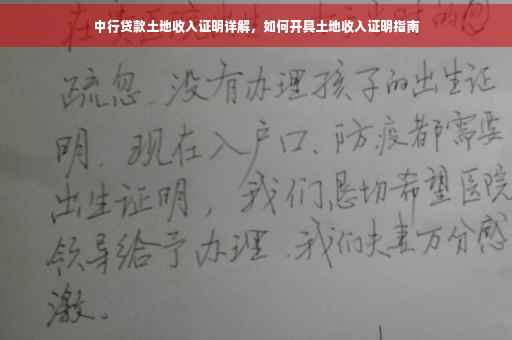 中行贷款土地收入证明详解，如何开具土地收入证明指南
疏忽.没有办理孩子的出生证
明.现在入户口、防疫都需要
出生证明，我们恳切希望医院
领导给予办理.我们夫妻万分感
激。